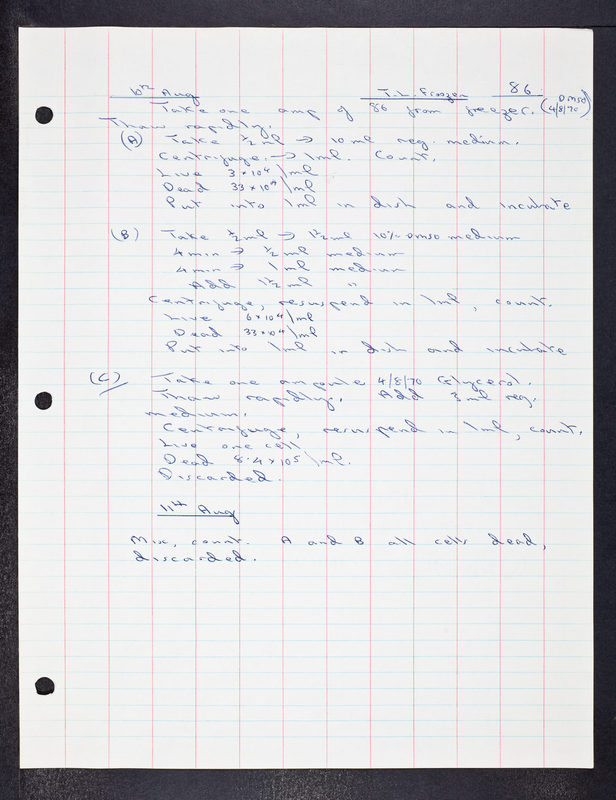 10th Aug T.L. Frozen 86
Take one amp of 86 from freezer. (DMSO 4/8/70)
Thaw rapidly.
(A) Take ½ ml → 10 ml reg. medium.
Centrifuge. → 1ml. Count.
Live 3 × 10⁴ / ml
Dead 33 × 10⁴ / ml
Put into 1ml in dish and incubate
(B) Take ½ ml → 1½ ml 10% DMSO medium
4 min → ½ ml medium
4 min → 1 ml medium
Add 1½ ml "
Centrifuge, resuspend in 1ml, count.
Live 6 × 10⁴ / ml
Dead 33 × 10⁴ / ml
Put into 1ml in dish and incubate
(C) Take one ampule 4/8/70 Glycerol.
Thaw rapidly. Add 3 ml reg.
medium.
Centrifuge, resuspend in 1ml, count.
Live one cell
Dead 8.4 × 10⁵ / ml.
Discarded.
11th Aug
Mix, count. A and B all cells dead,
discarded.